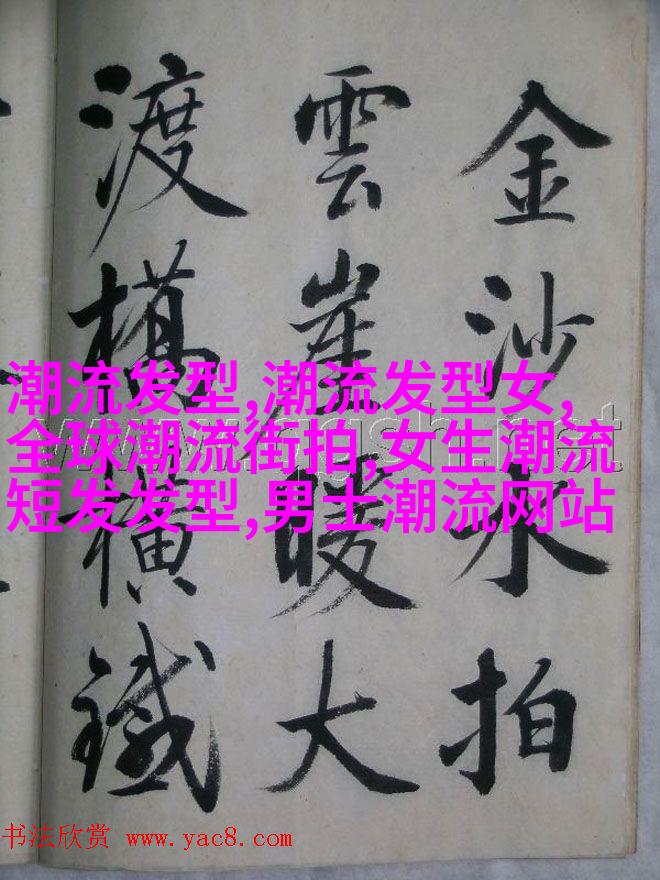 金沙水拍
雲崖暖大
渡橋横鐵
潮流发型,潮流发型女,
全球潮流街拍,女生潮流
短发发型,男士潮流网站
书法欣赏 www.yac8.com